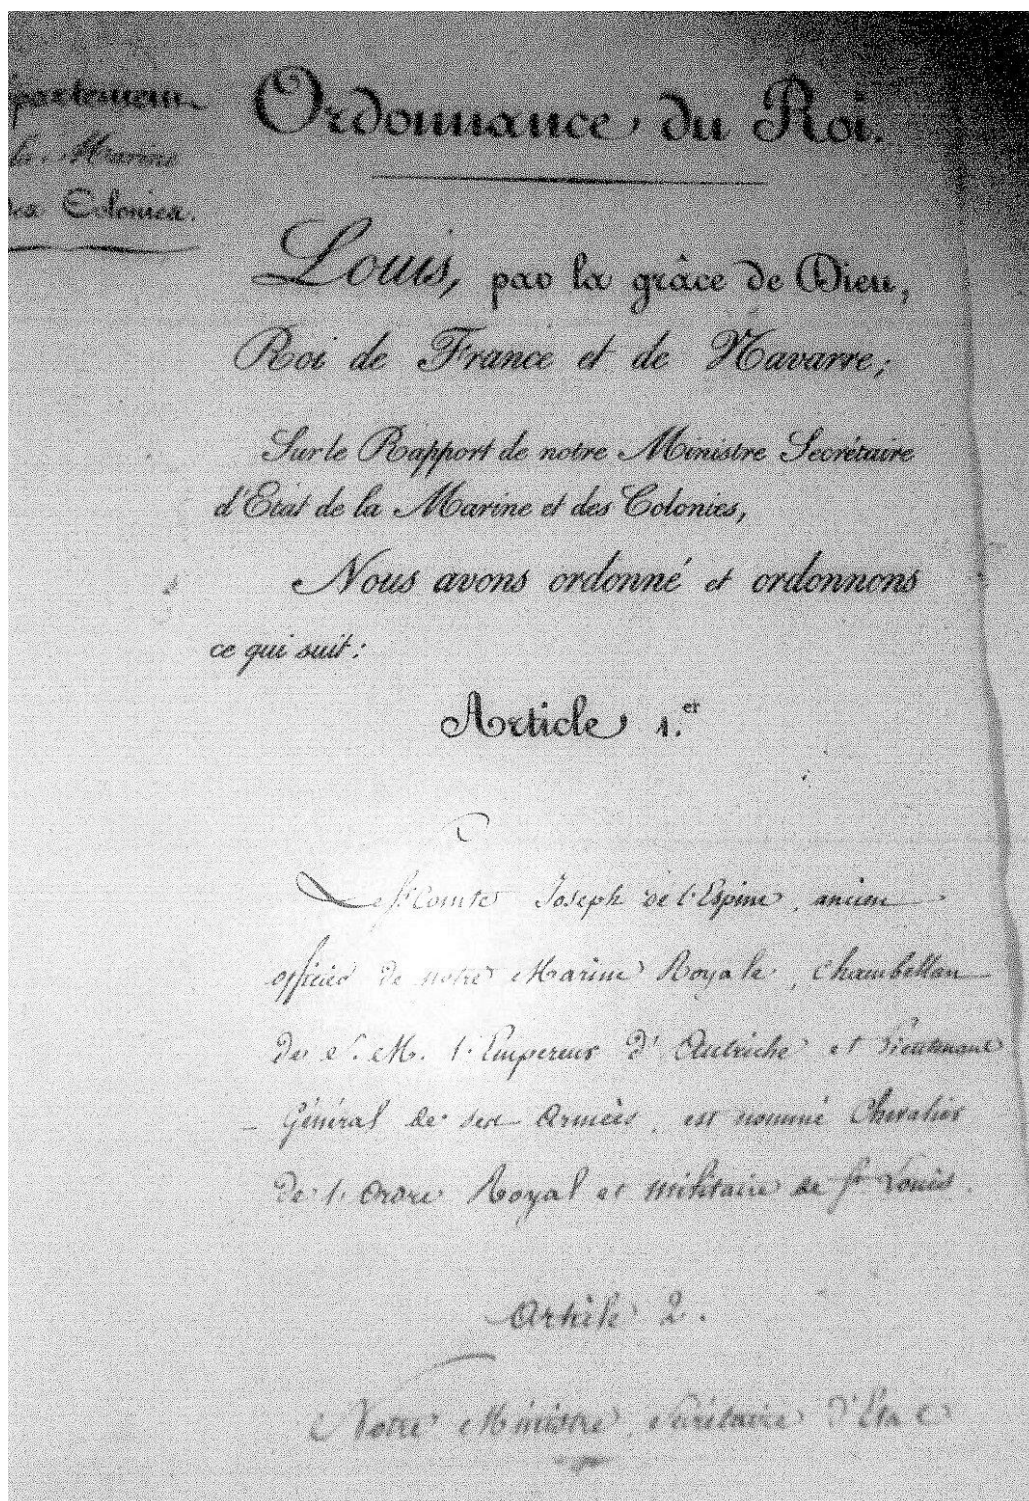 partement
la Marine
des Colonies.
Ordonnance du Roi.
Louis, par la grâce de Dieu,
Roi de France et de Navarre;
Sur le Rapport de notre Ministre Secrétaire
d'Etat de la Marine et des Colonies,
Nous avons ordonné et ordonnons
ce qui suit:
Article 1.er
Le Sr. Comte Joseph de l'Espine, ancien
officier de notre Marine Royale, Chambellan
de S. M. l'Empereur d'Autriche et Lieutenant
Général de ses Armées, est nommé Chevalier
de l'Ordre Royal et militaire de St Louis.
Article 2.
Notre Ministre Secrétaire d'Etat